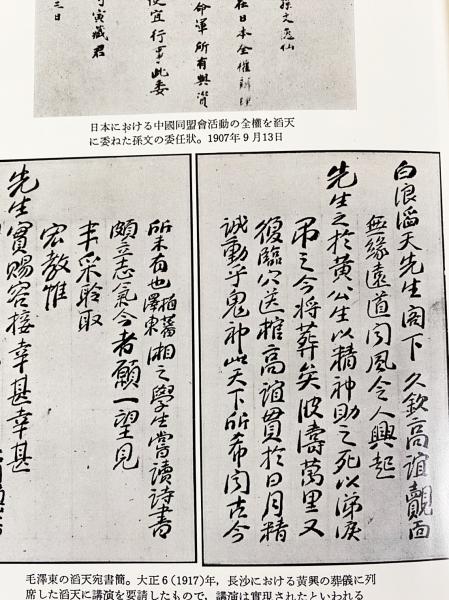 孫文逸仙
在日本全權辦理
命軍所有與資
便宜行事此委
寅藏君
三日
日本における中國同盟會活動の全權を滔天
に委ねた孫文の委任狀。1907年9月13日
白浪滔天先生閣下久欽高誼覿面
無緣遠道聞風令人興起
先生之於黃公生以精神助之死以涕淚
弔之今將葬矣波濤萬里又
復臨穴送棺高誼貫於日月精
誠動乎鬼神此天下所希聞古今
所未有也植蕃澤東湘之學生嘗讀詩書
頗立志氣今者願一望見
丰采聆取
宏教惟
先生實賜容接幸甚幸甚
毛澤東の滔天宛書簡。大正6(1917)年,長沙における黃興の葬儀に列
席した滔天に講演を要請したもので,講演は實現されたといわれる